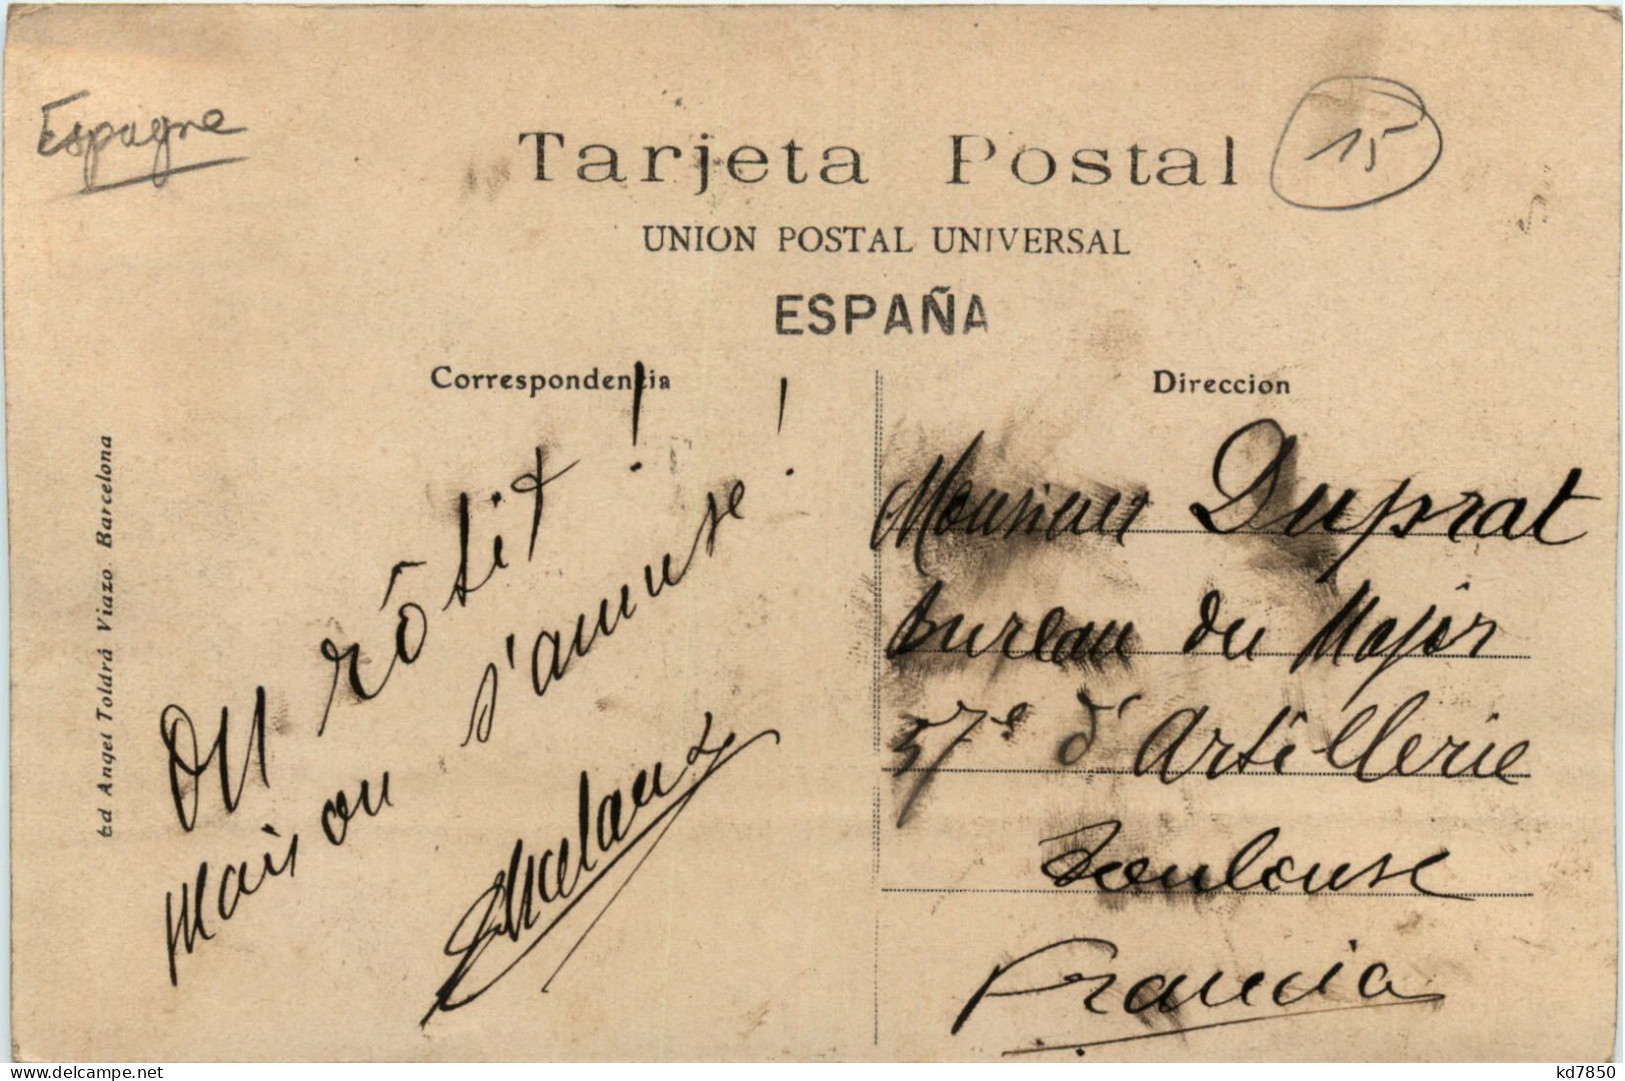 Espagne
15
Tarjeta Postal
UNION POSTAL UNIVERSAL
ESPAÑA
Correspondencia
Direccion
Ed Angel Toldrá Viazo Barcelona
On rôtit !
Mais on s'amuse !
Monsieur Duprat
Bureau du Major
57e d'Artillerie
Toulouse
Francia
www.delcampe.net
kd7850